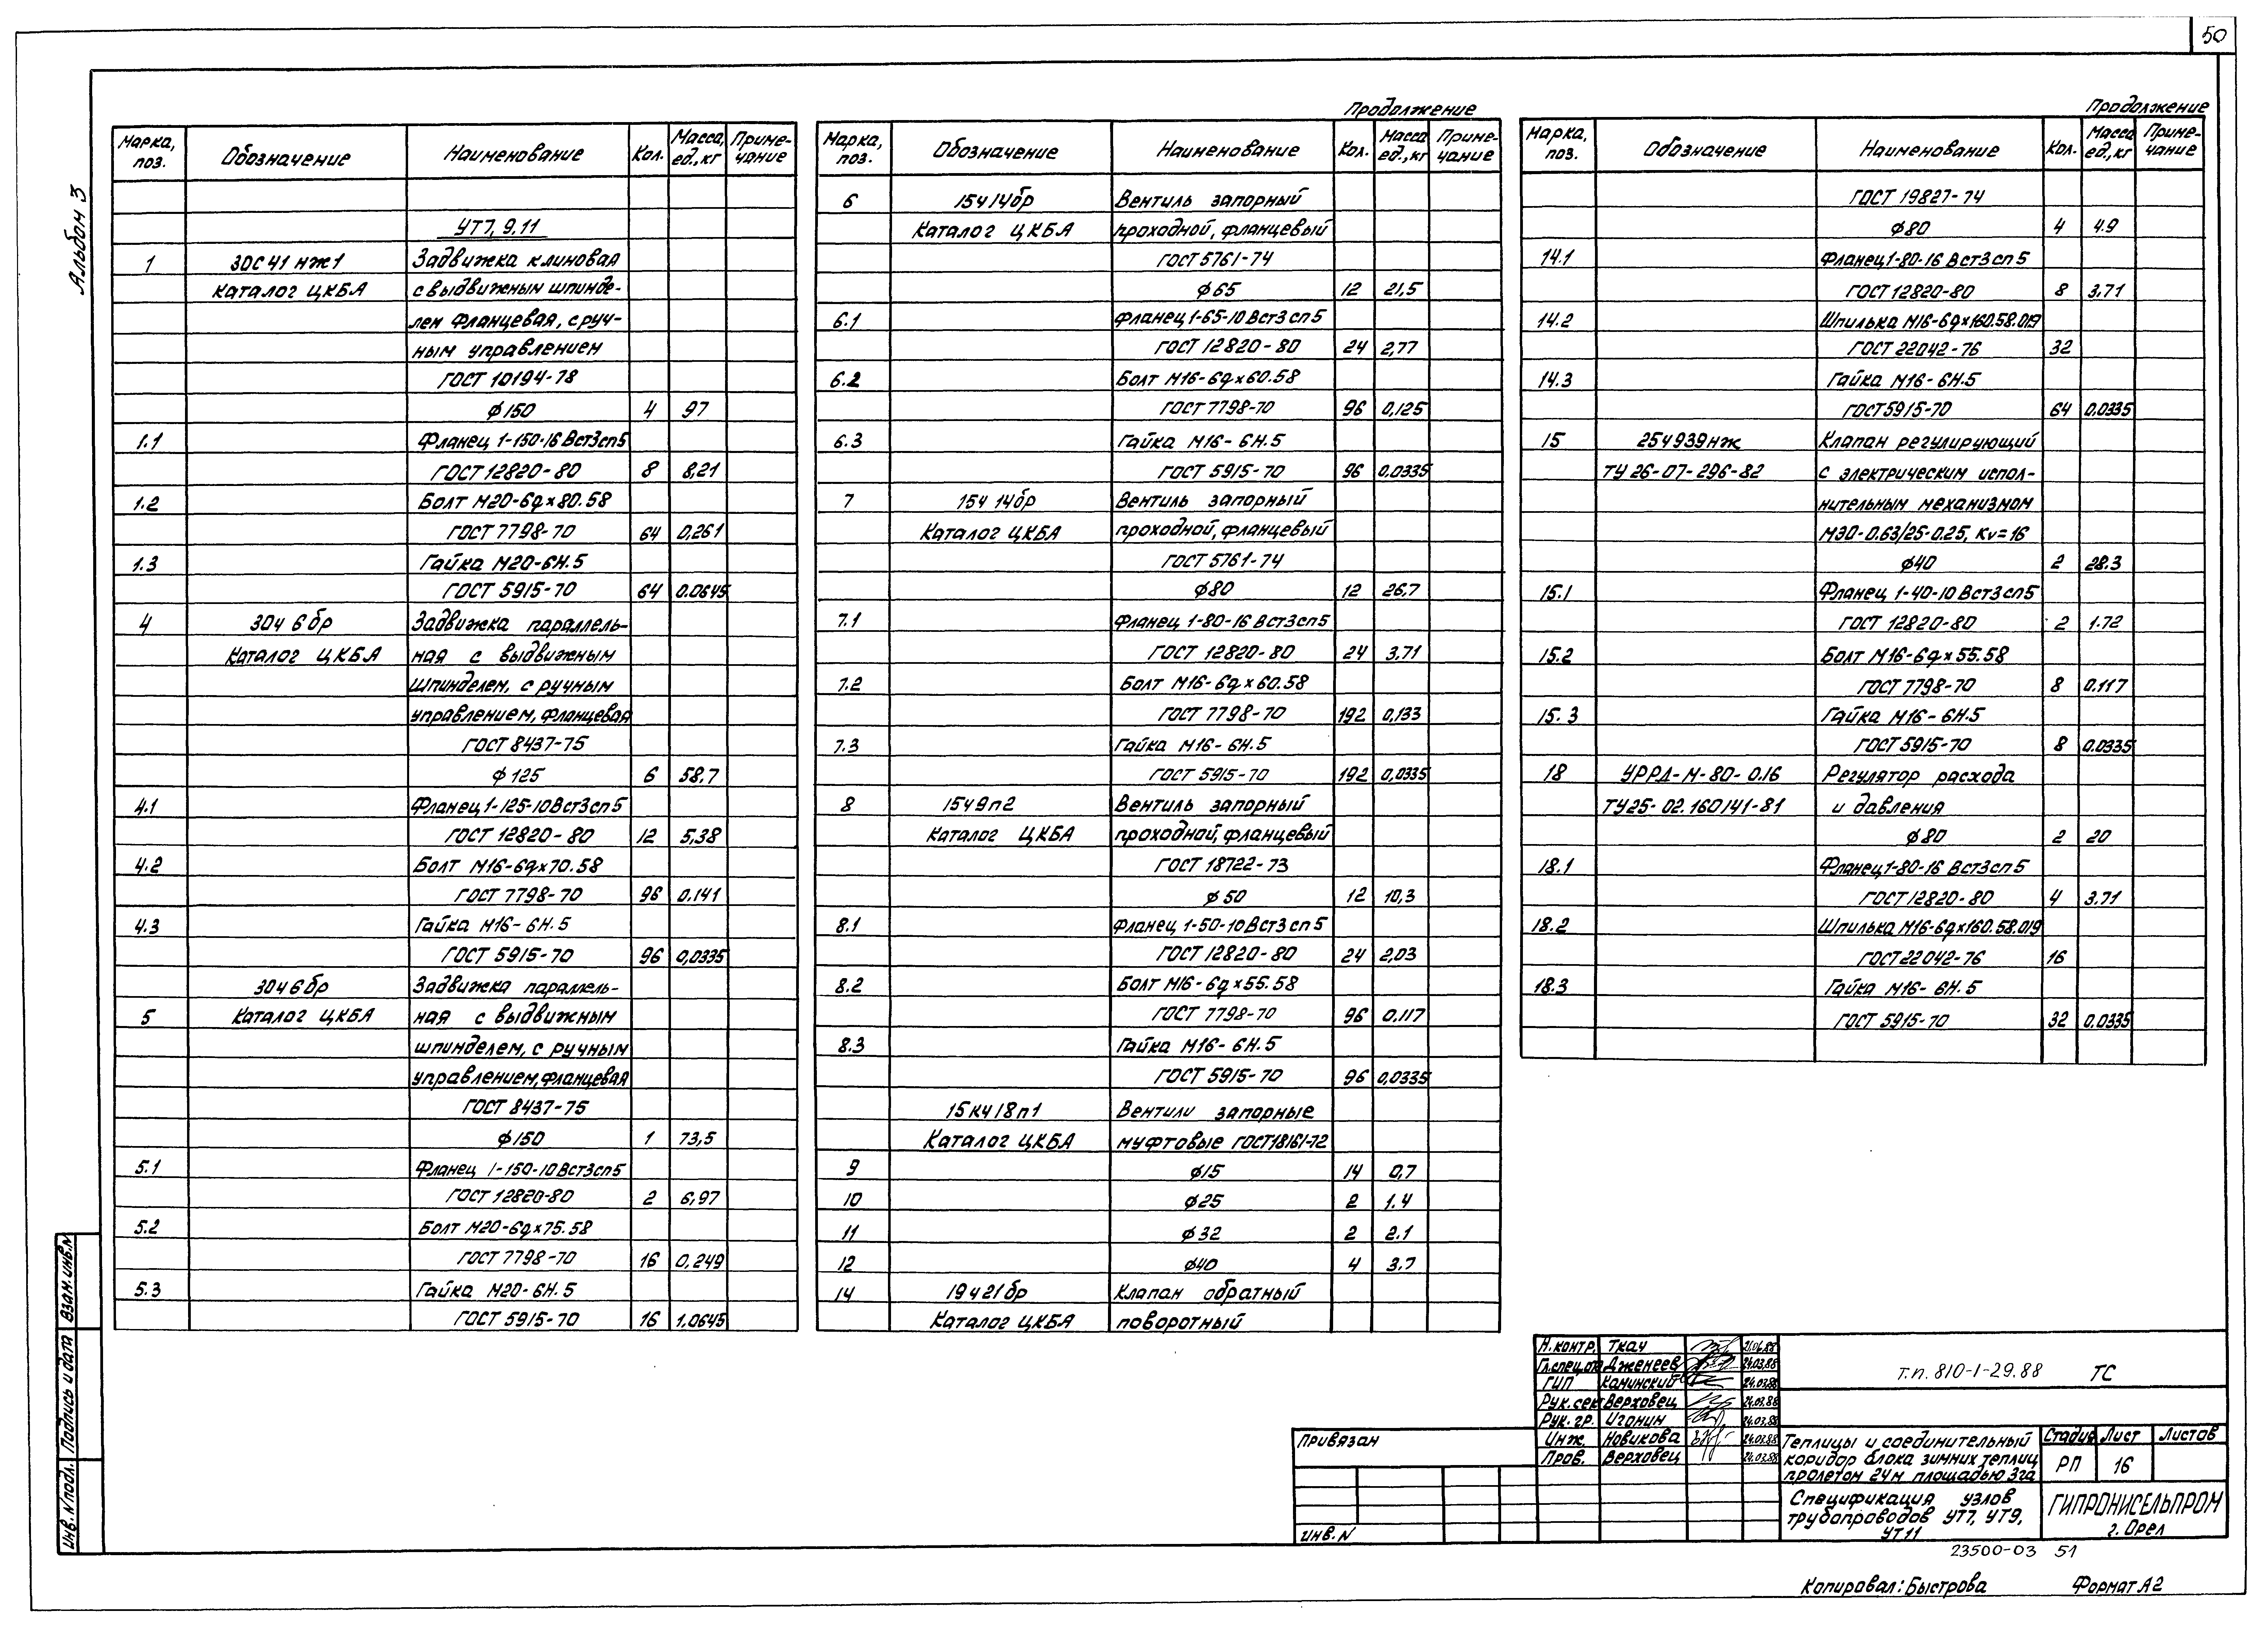 50
Альбом 3
Марка, поз. Обозначение Наименование Кол. Масса, ед., кг Примечание
УТ7, 9, 11
1 30с41нж1 Задвижка клиновая
Каталог ЦКБА с выдвижным шпинде-
лем фланцевая, с руч-
ным управлением
ГОСТ 10194-78
ф150 4 97
1.1 Фланец 1-150-16 Вст3сп5
ГОСТ 12820-80 8 8,21
1.2 Болт М20-6gx80.58
ГОСТ 7798-70 64 0,261
1.3 Гайка М20-6Н.5
ГОСТ 5915-70 64 0.0645
4 30ч6бр Задвижка параллель-
Каталог ЦКБА ная с выдвижным
шпинделем, с ручным
управлением, фланцевая
ГОСТ 8437-75
ф125 6 58,7
4.1 Фланец 1-125-10 Вст3сп5
ГОСТ 12820-80 12 5,38
4.2 Болт М16-6gx70.58
ГОСТ 7798-70 96 0.141
4.3 Гайка М16-6Н.5
ГОСТ 5915-70 96 0,0335
30ч6бр Задвижка параллель-
5 Каталог ЦКБА ная с выдвижным
шпинделем, с ручным
управлением, фланцевая
ГОСТ 8437-75
ф150 1 73,5
5.1 Фланец 1-150-10 Вст3сп5
ГОСТ 12820-80 2 6,97
5.2 Болт М20-6gx75.58
ГОСТ 7798-70 16 0,249
5.3 Гайка М20-6Н.5
ГОСТ 5915-70 16 1,0645
Продолжение
Марка, поз. Обозначение Наименование Кол. Масса ед., кг Примечание
6 15ч14бр Вентиль запорный
Каталог ЦКБА проходной, фланцевый
ГОСТ 5761-74
ф65 12 21,5
6.1 Фланец 1-65-10 Вст3сп5
ГОСТ 12820-80 24 2,77
6.2 Болт М16-6gx60.58
ГОСТ 7798-70 96 0,125
6.3 Гайка М16-6Н.5
ГОСТ 5915-70 96 0.0335
7 15ч14бр Вентиль запорный
Каталог ЦКБА проходной, фланцевый
ГОСТ 5761-74
ф80 12 26,7
7.1 Фланец 1-80-16 Вст3сп5
ГОСТ 12820-80 24 3.71
7.2 Болт М16-6gx60.58
ГОСТ 7798-70 192 0,133
7.3 Гайка М16-6Н.5
ГОСТ 5915-70 192 0,0335
8 15ч9п2 Вентиль запорный
Каталог ЦКБА проходной, фланцевый
ГОСТ 18722-73
ф50 12 10,3
8.1 Фланец 1-50-10 Вст3сп5
ГОСТ 12820-80 24 2,03
8.2 Болт М16-6gx55.58
ГОСТ 7798-70 96 0.117
8.3 Гайка М16-6Н.5
ГОСТ 5915-70 96 0,0335
15кч18п1 Вентили запорные
Каталог ЦКБА муфтовые ГОСТ 18161-72
9 ф15 14 0,7
10 ф25 2 1.4
11 ф32 2 2.1
12 ф40 4 3.7
14 19ч21бр Клапан обратный
Каталог ЦКБА поворотный
Продолжение
Марка, поз. Обозначение Наименование Кол. Масса ед., кг Примечание
ГОСТ 19827-74
ф80 4 4.9
14.1 Фланец 1-80-16 Вст3сп5
ГОСТ 12820-80 8 3.71
14.2 Шпилька М16-6gx160.58.019
ГОСТ 22042-76 32
14.3 Гайка М16-6Н.5
ГОСТ 5915-70 64 0.0335
15 25ч939нж Клапан регулирующий
ТУ 26-07-296-82 с электрическим испол-
нительным механизмом
МЭО-0.63/25-0.25, Kv=16
ф40 2 28.3
15.1 Фланец 1-40-10 Вст3сп5
ГОСТ 12820-80 2 1.72
15.2 Болт М16-6gx55.58
ГОСТ 7798-70 8 0.117
15.3 Гайка М16-6Н.5
ГОСТ 5915-70 8 0.0335
18 УРРД-М-80-0.16 Регулятор расхода
ТУ25-02.160141-81 и давления
ф80 2 20
18.1 Фланец 1-80-16 Вст3сп5
ГОСТ 12820-80 4 3.71
18.2 Шпилька М16-6gx160.58.019
ГОСТ 22042-76 16
18.3 Гайка М16-6Н.5
ГОСТ 5915-70 32 0.0335
Инв.N подл. Подпись и дата Взам.инв.N
Привязан
Инв.N
Н.контр. Ткач 21.06.88
Гл.спец.от Дженеев 24.03.88
ГИП Каминский 24.03.88
Рук.сек Верховец 24.03.88
Рук.гр. Игонин 24.03.88
Инж. Новикова 24.03.88
Пров. Верховец 24.03.88
т.п. 810-1-29.88 ТС
Теплицы и соединительный
коридор блока зимних теплиц
пролетом 24м площадью 3га
Стадия Лист Листов
РП 16
Спецификация узлов
трубопроводов УТ7, УТ9,
УТ11
ГИПРОНИСЕЛЬПРОМ
г. Орел
23500-03 51
Копировал: Быстрова Формат А2